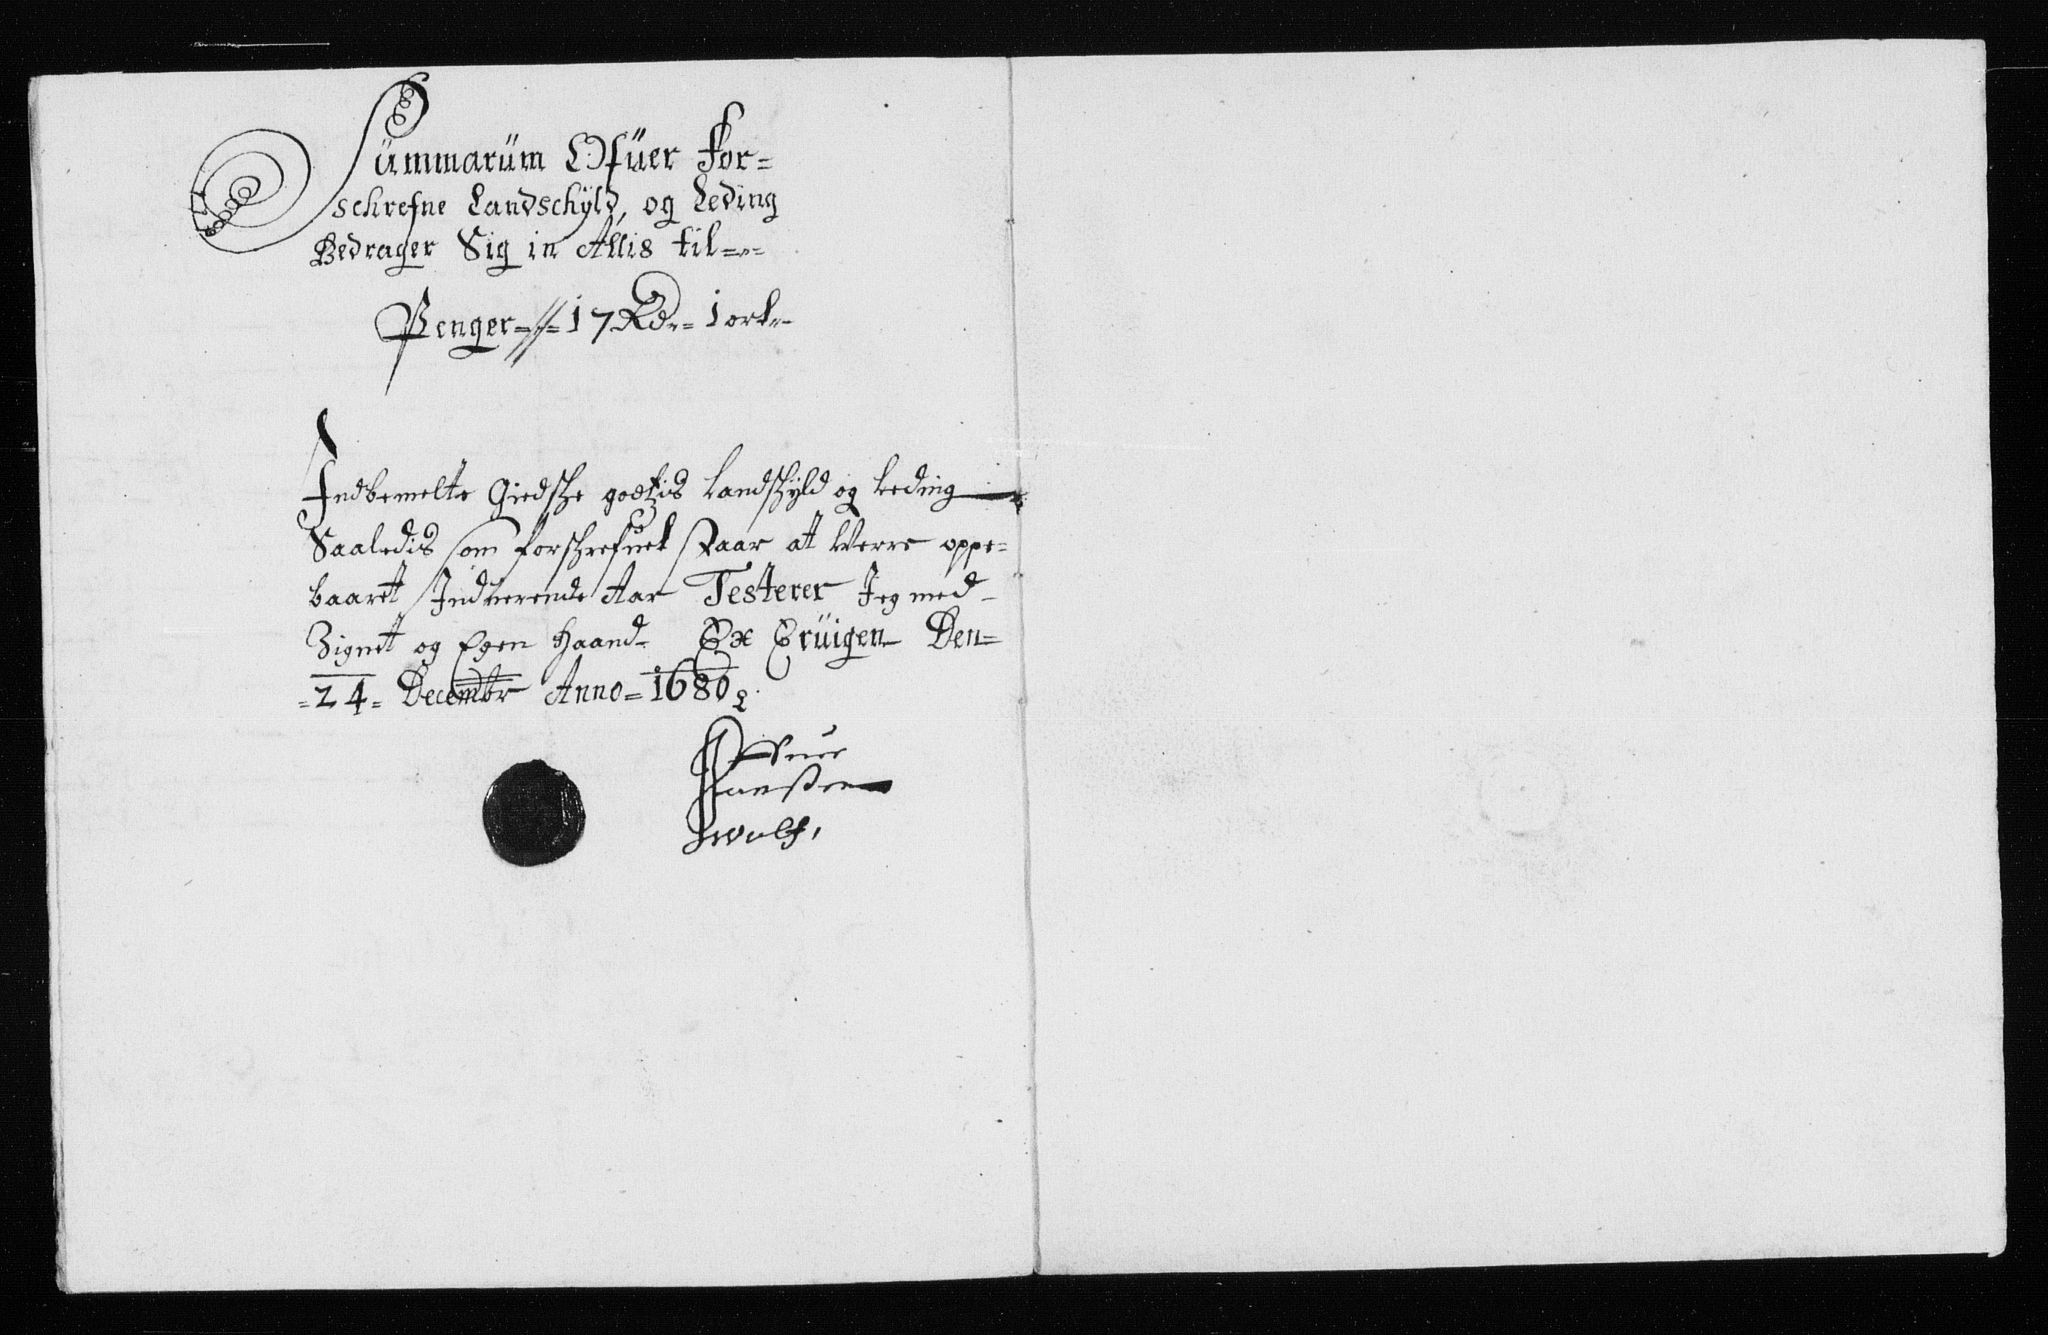 Summarüm Ofüer For=
schrefne Landschÿld, og Leding
Bedrager Sig in Allis til=
Penger=//=17 Rd= 1 ort=
Indbemelte Giedsche godtzis Landschÿld og Leding
Saaledis som forschrefuet staar at Werre oppe=
baaret Indnerende Aar Testerer Jeg med
Zignet og Egen Haand= Ex Erüigen Den=
=24= Decembr Anno= 1680
Hansen